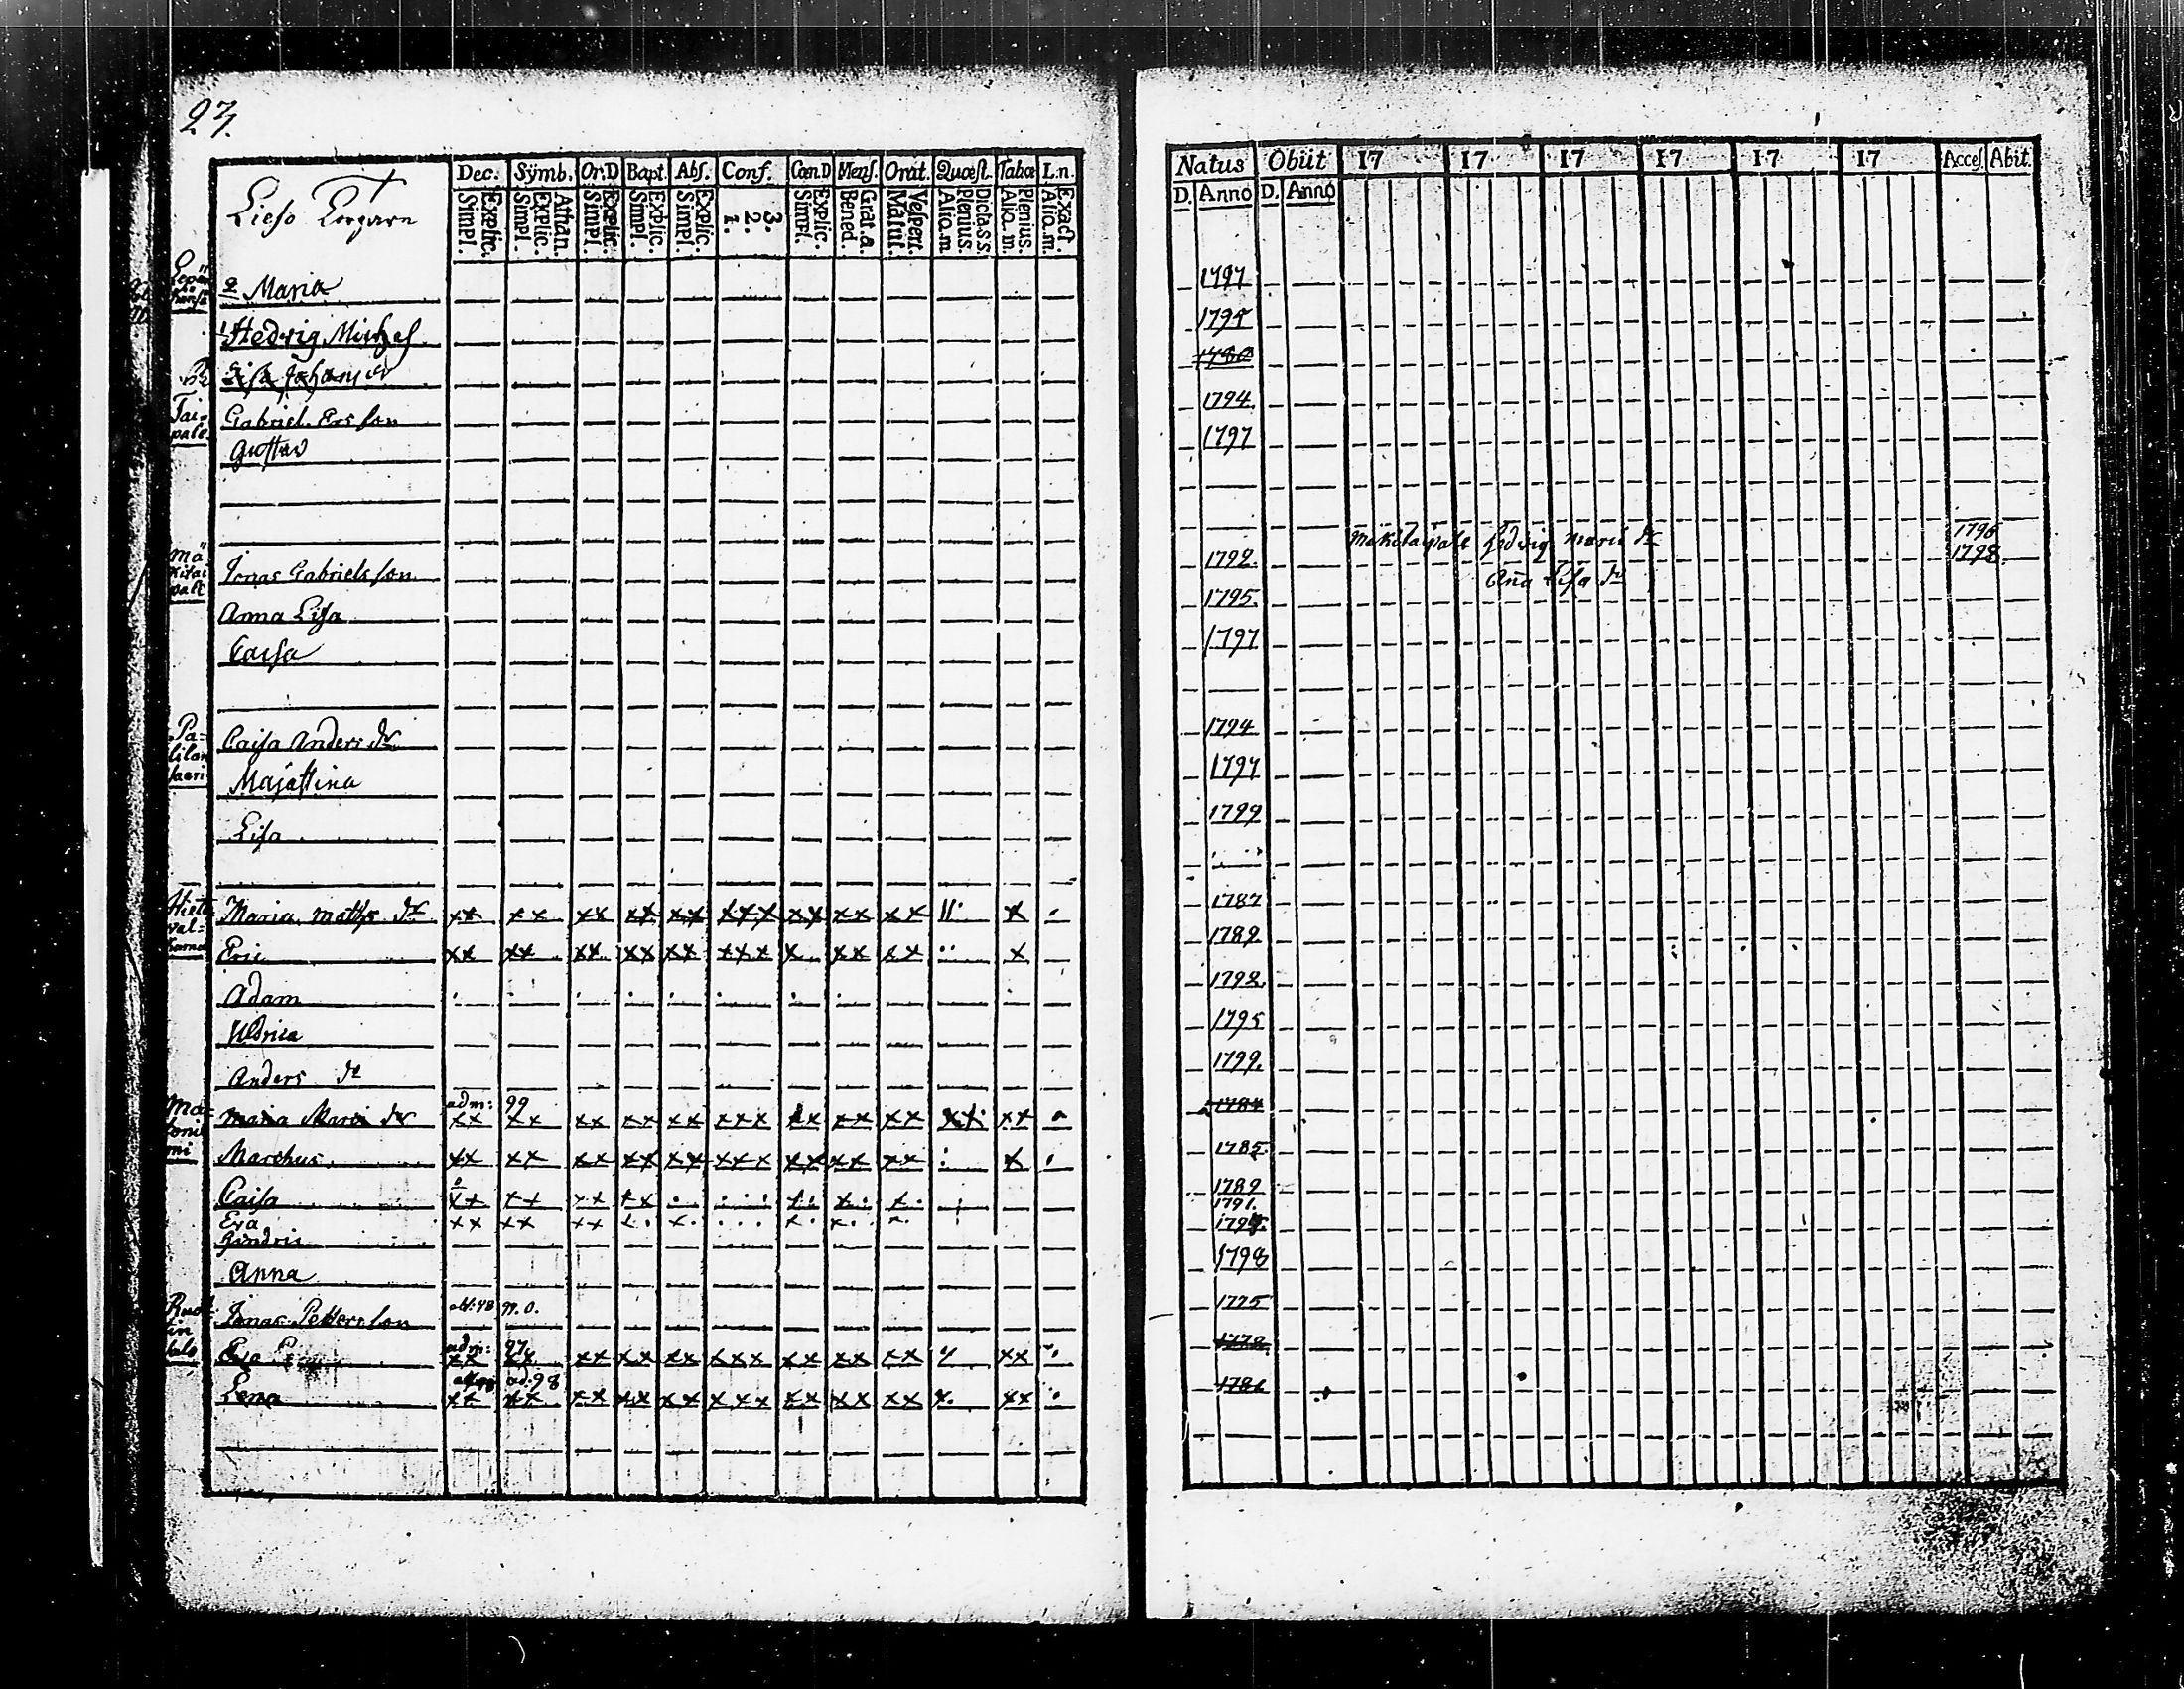 27.
Dec. Sÿmb. Or.D Bapt. Abſ. Conf. Cœn.D Menſ. Orat. Quœſt. Tabœ L.n.
Explic. Simpl. Athan. Explic. Simpl. Explic. Simpl. Explic. Simpl. Explic. Simpl. 3. 2. 1. Explic. Simpl. Grat.a. Bened. Veſpert. Matut. Dicta.s.s. Plenius. Aliq.m. Plenius. Aliq.m. Exact. Aliq.m.
Lieſo
2 Maria
1 Hedwig
Tai-
pale
Gabriel Ers ſon
Guſtav
Mä
kitai
pale
Jonas Gabriels ſon
Anna Liſa
Caiſa
Pa-
lilan
ſaari
Caiſa Anders dr
Majaſtina
Liſa
Hieta
val-
kama
Maria Matts dr xx xx xx xx xx xxx xx xx xx x
Eric xx xx xx xx xx xxx x xx xx x
Adam
Ulrica
Anders
adm: 99
Maria dr xx xx xx xx xx xxx xx xx xx xx
Marchus xx xx xx xx xx xxx xx xx xx x
Caiſa xx xx xx xx
Eva xx xx xx
Hindric
Anna
Jonas Petterſon
adm: 97
Eva xx xx xx xx xx xxx xx xx xx xx
ad: 98
Lena xx xx xx xx xx xxx xx xx xx x. xx
Natus Obüt 17 17 17 17 17 17 Acceſ. Abit.
D. Anno D. Anno
1797
1795
1780
1794.
1797
Mäkitaipale Hedvig Marii dr 1796
1792. 1798.
Aña Liſa dr
1795.
1797
1794
1797
1799
1787
1789
1792.
1795
1799.
1784
1785.
1789
1791.
1794.
1798
1775
1778
1781